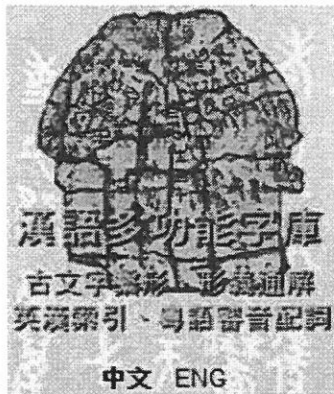 漢語多功能字庫
古文字字形 形義通解
英漢索引、粵語審音配詞
中文 ENG